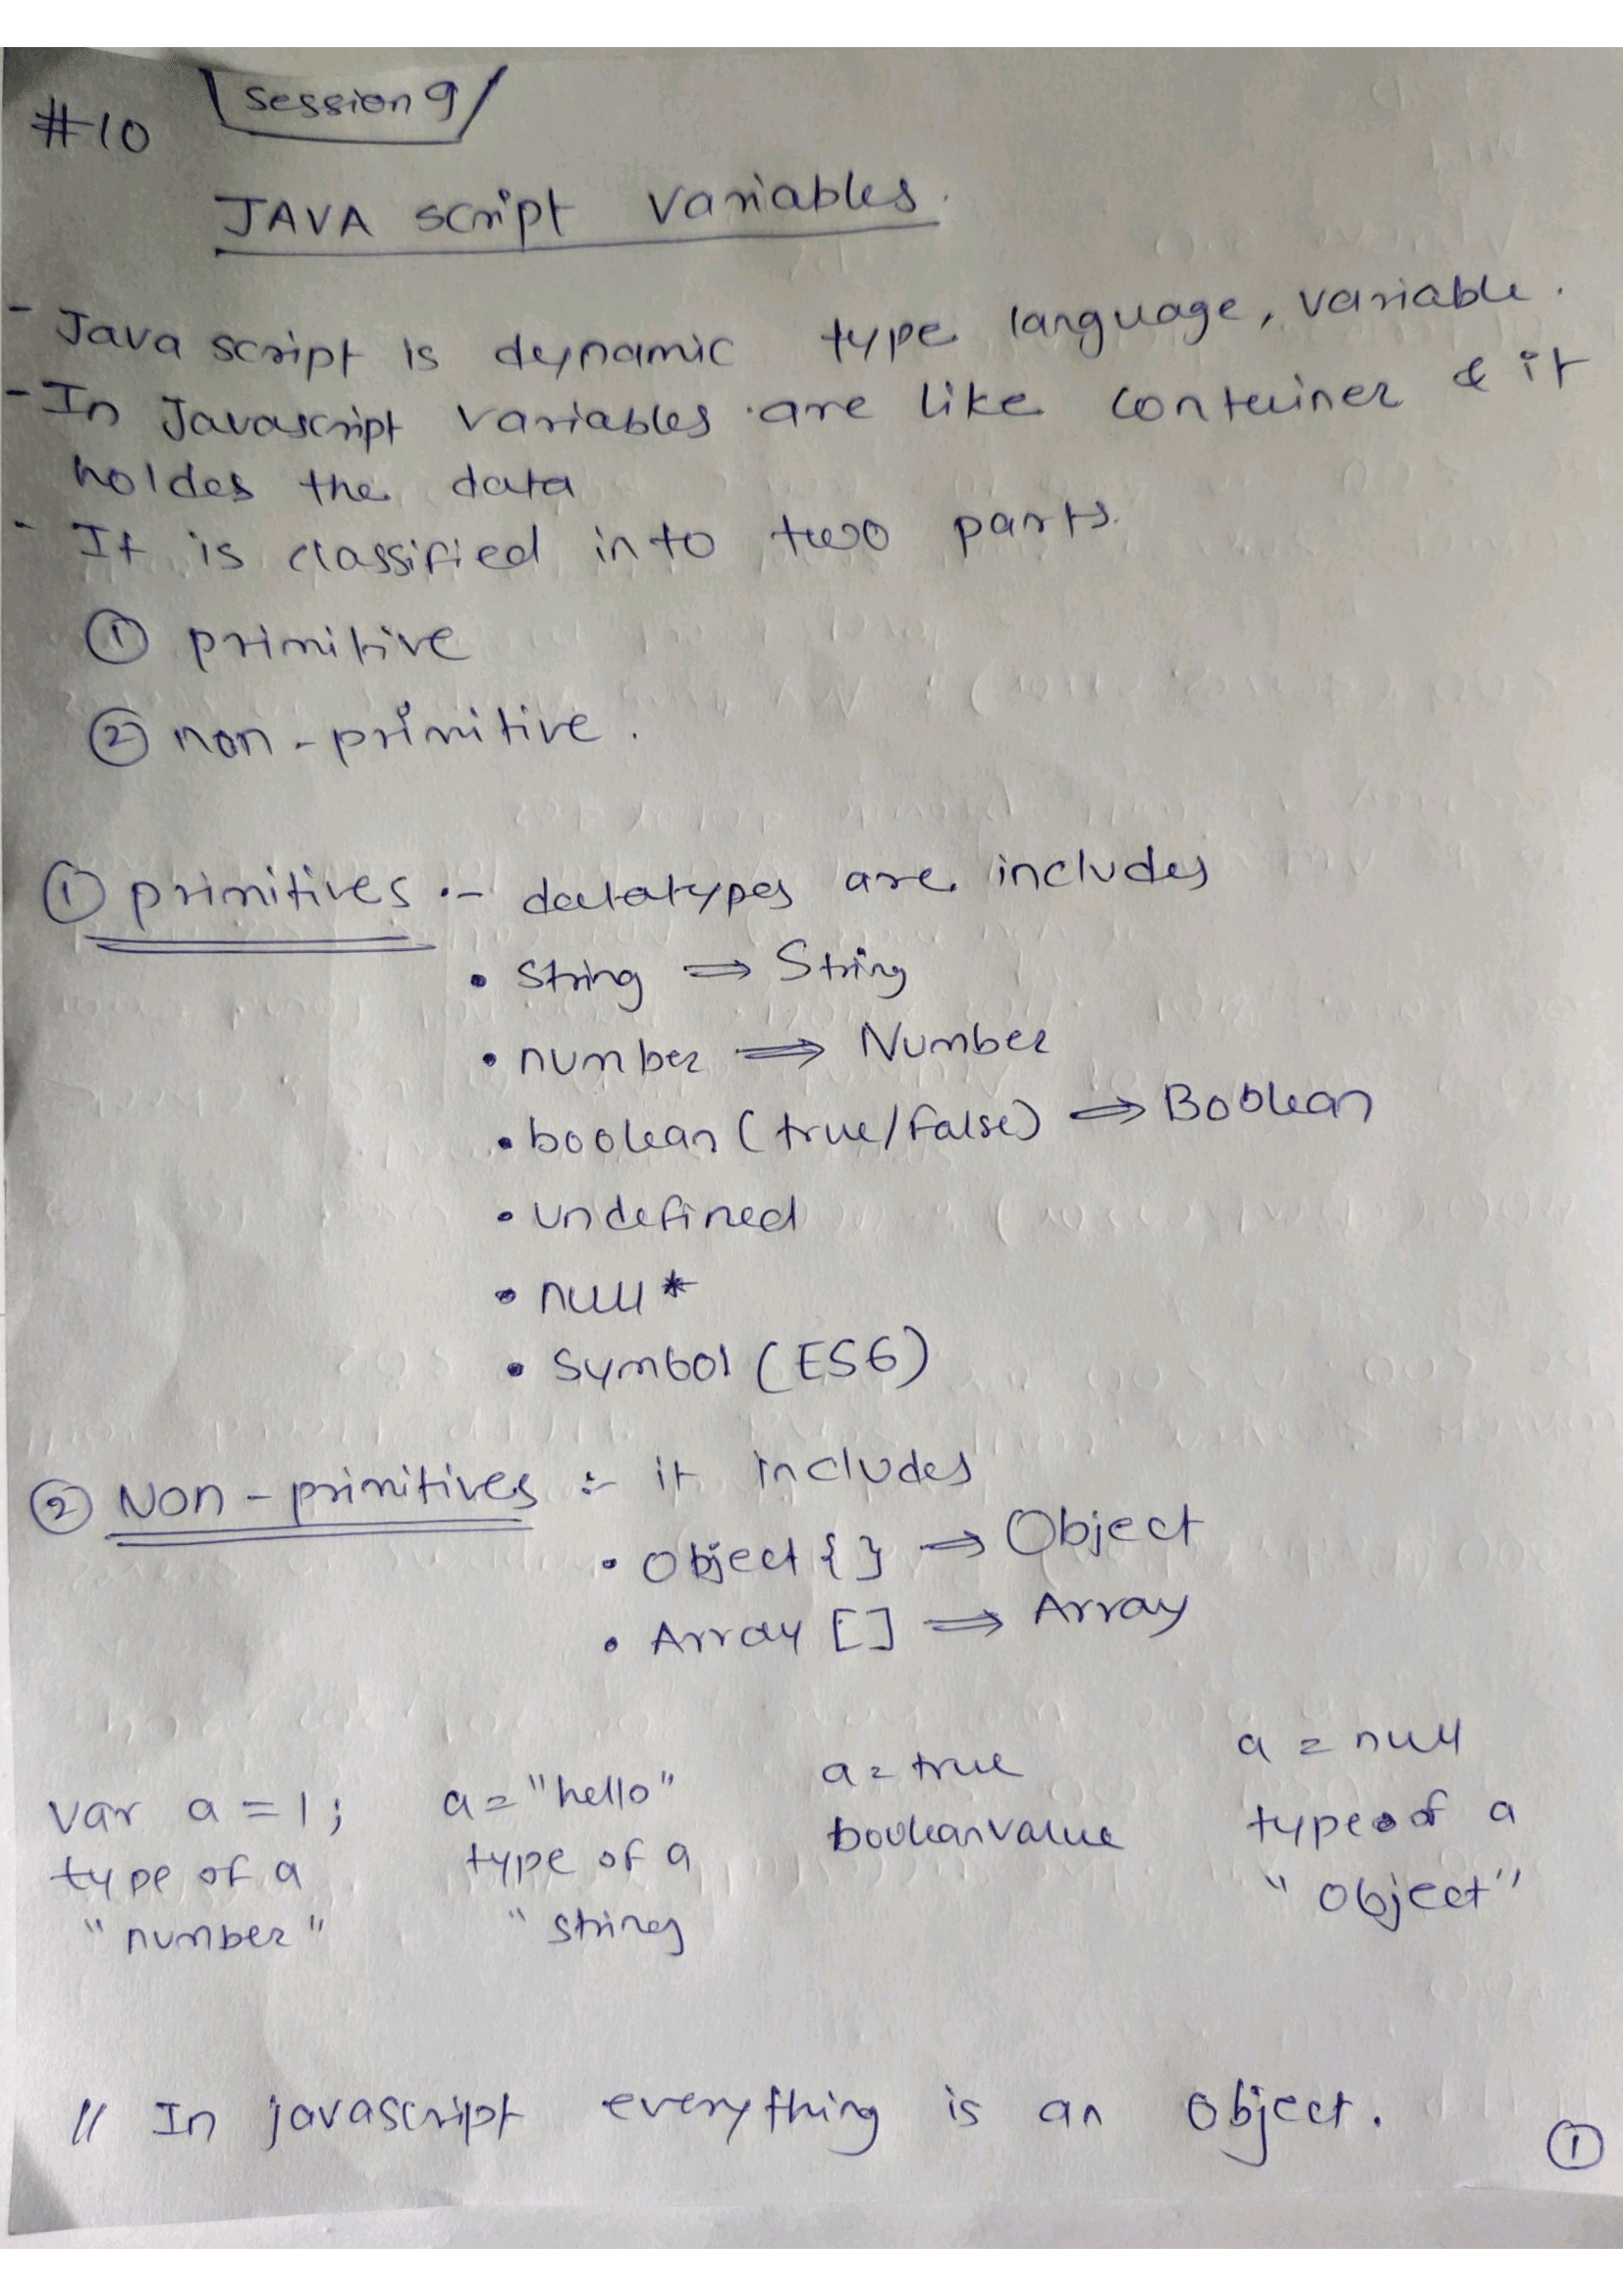 #10 Session 9
JAVA script variables.
- Java script is dynamic type language, variable.
- In Javascript variables are like container & it
holdes the data
- It is classified into two parts.
① primitive
② non-primitive.
① primitives :- datatypes are includes
• string ⇒ String
• number ⇒ Number
• boolean (true/false) ⇒ Boolean
• undefined
• null *
• Symbol (ES6)
② Non-primitives :- it includes
• Object { } ⇒ Object
• Array [ ] ⇒ Array
var a = 1; a = "hello" a = true a = null
type of a type of a boolean value type of a
"number" "string "object"
// In javascript everything is an object.
①